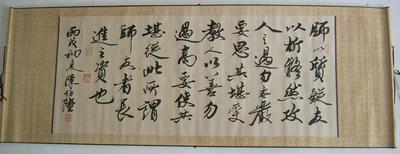 師以質疑友
以析疑然攻
人之過勿太嚴
要思其堪受
教人以善勿
過高要使其
堪從此所謂
師友者長
進之資也
丙戌初夏陳